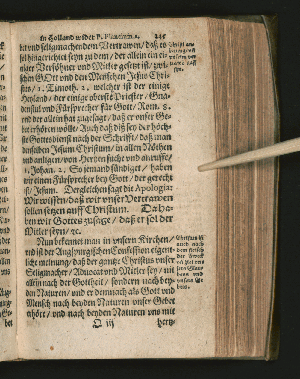 in Holland wider P. 245
vnd seligmachendem Vertrawen/ daß es
sel hingerichtet seyn zu dem/ der allein ein ei-
niger Versöhner vnd Mitler gesetzt ist/ zwi-
schen GOtt vnd den Menschen Jesus Chri-
stus/ 1. Timoth. 2. welcher ist der einige
Heyland/ der einige oberste Priester/ Gna-
denstul vnd Fürsprecher für Gott/ Rom. 8.
vnd der allein hat zugesagt/ daß er vnser Ge-
bet erhören wölle/ Auch daß diß sey der höch-
ste Gottesdienst nach der Schrifft/ daß man
denselben Jesum Christum/ in allen Nöthen
vnd anligen/ von Hertzen suche vnd anruffe/
1. Johan. 2. So jemand sündiget/ so haben
wir einen Fürsprecher bey Gott/ der gerecht
ist/ Jesum. Dergleichen sagt die Apologia:
Wir wissen/ daß wir vnser Vertrawen
sollen setzen auff Christum. Da ha-
ben wir Gottes zusage/ daß er sol der
Mitler seyn/ ꝛc.
Nun bekennet man in vnsern Kirchen/
vnd ist der Augspurgischen Confession eigent-
liche meinung/ daß der gantze Christus vnser
Seligmacher/ Advocat vnd Mitler sey/ nit
allein nach der Gottheit/ sondern nach bey-
den Naturen/ vnd er demnach als Gott vnd
Mensch nach beyden Naturen vnser Gebet
höret/ vnd nach beyden Naturen vns mit
Q iij hertz-
Christus ist
auch nach
dem fleisch